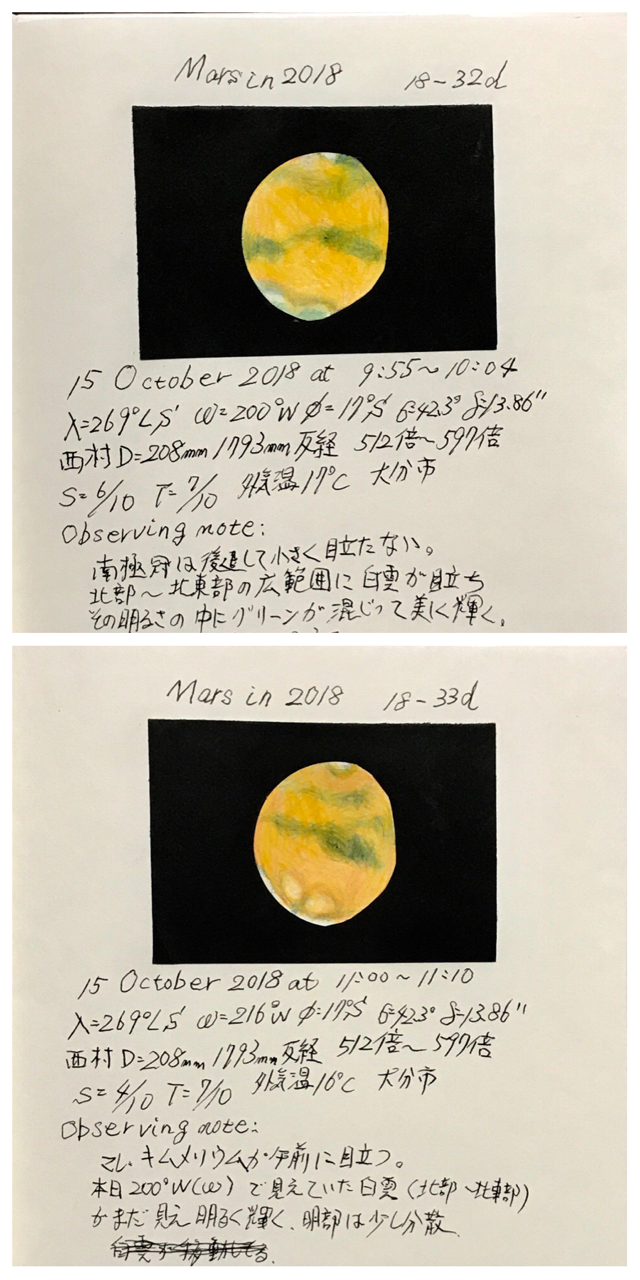 Mars in 2018 18-32d
15 October 2018 at 9:55~10:04
λ=269°Ls ω=200°W φ=17°S ϐ=42.3° δ=13.86"
西村 D=208mm 1793mm反経 512倍~597倍
S=6/10 T=7/10 外気温17°C 大分市
Observing note:
南極冠は後退して小さく目立たない。
北部~北東部の広範囲に白雲が目立ち
その明るさの中にグリーンが混じって美しく輝く。
Mars in 2018 18-33d
15 October 2018 at 11:00~11:10
λ=269°Ls ω=216°W φ=17°S ϐ=42.3° δ=13.86"
西村 D=208mm 1793mm反経 512倍~597倍
S=4/10 T=7/10 外気温16°C 大分市
Observing note:
マレ・キムメリウムが午前に目立つ。
本日200°W(ω)で見えていた白雲(北部~北東部)
がまだ見え明るく輝く、明部は少し分散